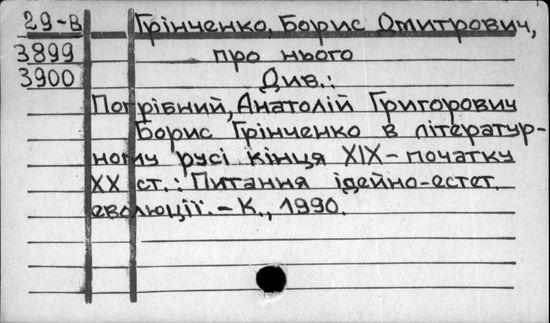 29-В Грінченко, Борис Дмитрович,
3899 про нього
3900 Див.:
Погрібний, Анатолій Григорович
Борис Грінченко в літератур-
ному русі кінця XIX - початку
XX ст.: Питання ідейно-естет.
еволюції. - К., 1990.